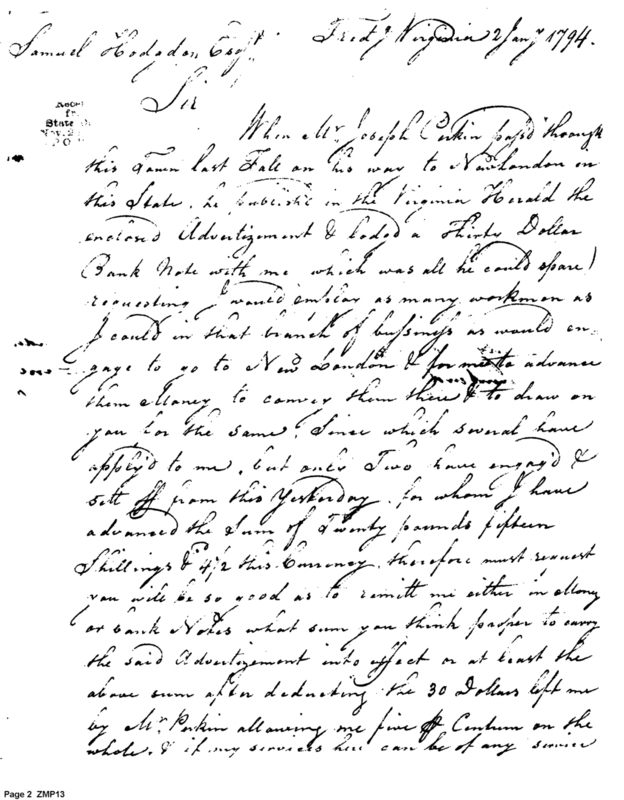 Samuel Hodgdon Esqr.
Fredg Virginia 2 Jany 1794.
Sir
State D
Nov. 2
When Mr. Joseph Perkin pass'd through
this Town last Fall on his way to New London in
this State, he publish'd in the Virginia Herald the
enclosed Advertizement & lodged a Thirty Dollar
Bank Note with me which was all he could spare)
requesting I would employ as many workmen as
I could in that branch of bussiness as would en-
gage to go to New London & for me to advance
them Money to convey them there & to draw on
you for the same. Since which several have
apply'd to me, but only Two have engag'd &
sett off from this Yesterday, for whom I have
advanced the Sum of Twenty pounds fifteen
Shillings & 4½ this Currency, therefore must request
you will be so good as to remitt me either in Money
or bank Notes what sum you think proper to carry
the said Advertizement into effect or at least the
above sum after deducting the 30 Dollars left me
by Mr. Perkin allowing me five Centum on the
whole. & if my services here can be of any service
Page 2 ZMP13